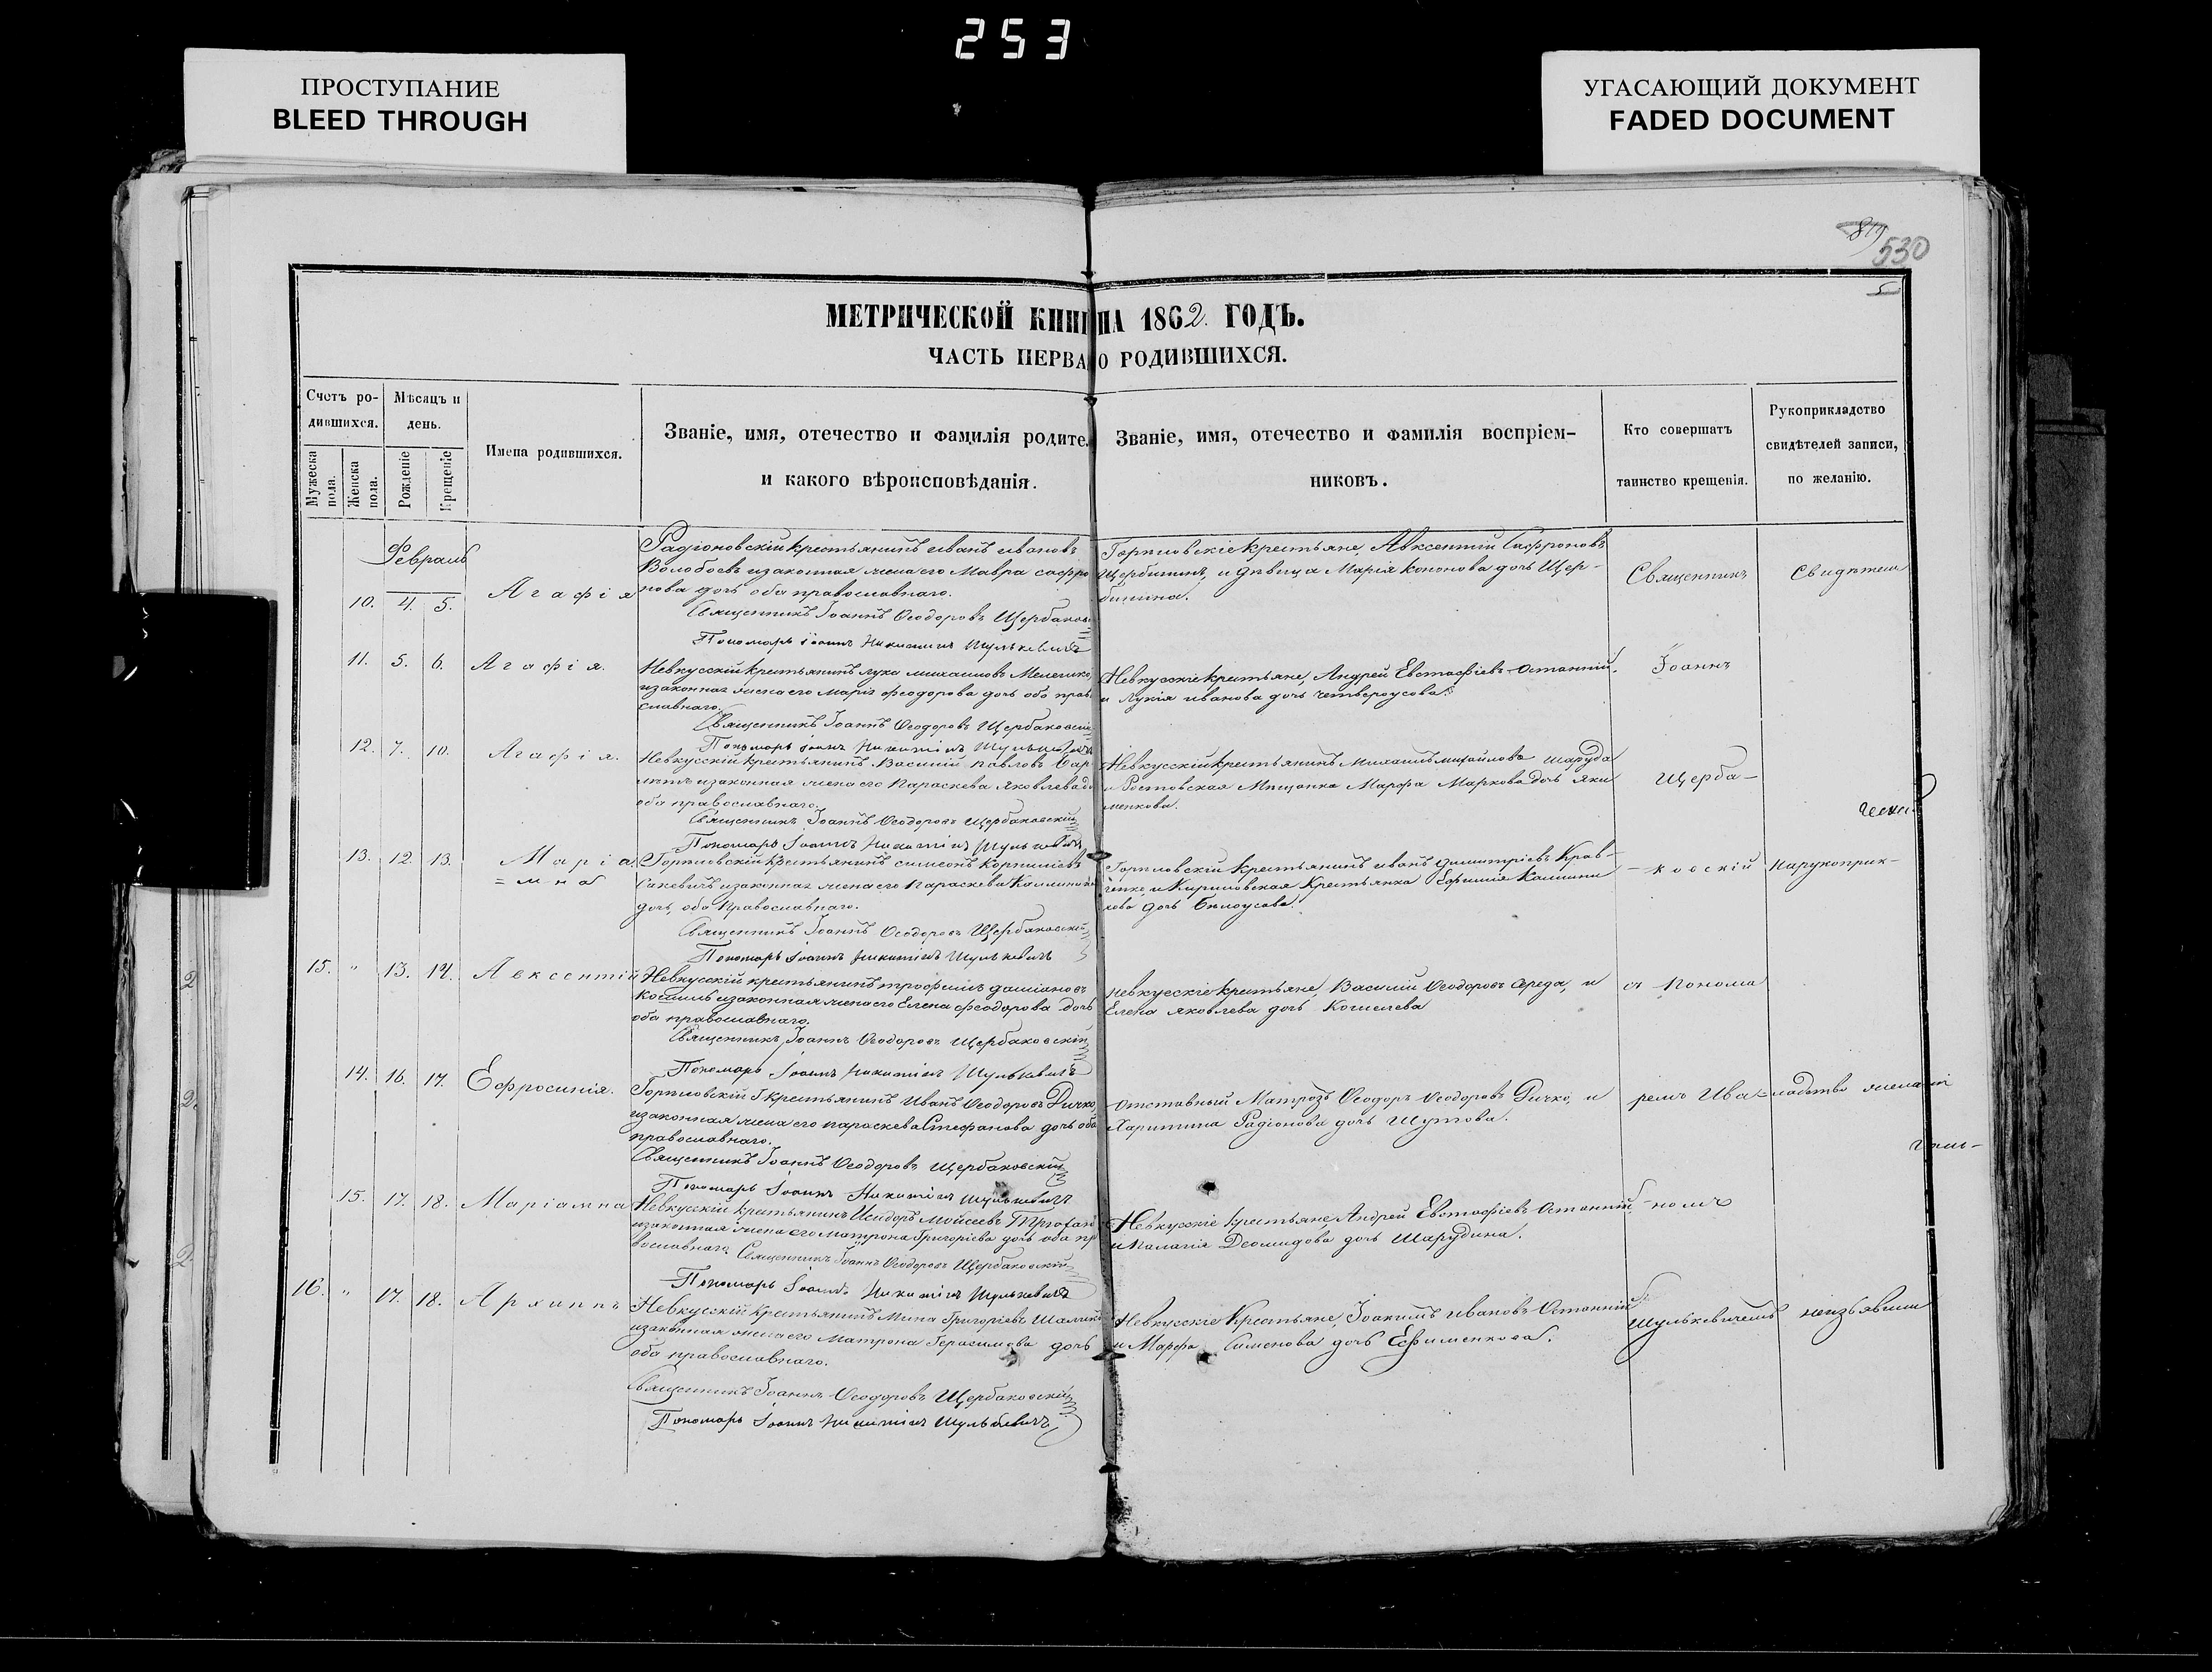 253
ПРОСТУПАНИЕ
BLEED THROUGH
УГАСАЮЩИЙ ДОКУМЕНТ
FADED DOCUMENT
530
МЕТРИЧЕСКОЙ КНИГ НА 1862. ГОДЪ.
ЧАСТЬ ПЕРВА О РОДИВШИХСЯ.
Счетъ ро-
дившихся.
Мужеска пола.
Женска пола.
Мѣсяцъ и
день.
Рожденіе
Крещеніе
Имена родившихся.
Званіе, имя, отечество и фамилія родите
и какого вѣроисповѣданія.
Званіе, имя, отечество и фамилія воспріем-
никовъ.
Кто совершатъ
таинство крещенія.
Рукоприкладство
свидѣтелей записи,
по желанію.
Февраль
10. 4. 5. Агафія
Радіоновскій крестьянинъ иванъ ивановъ
Волобоевъ изаконная жена его Мавра сафро
нова дочь оба православнаго.
Священникъ Іоаннъ Ѳеодоровъ Щербаковс
Пономарь іоаннъ Никитинъ Шулькевичъ
Горпловскіе крестьяне, Авксентій Сафроновъ
Щербининъ, и дѣвица Марія кононова дочь Щер-
бинина.
Священникъ
Свидѣтели
11. 5. 6. Агафія.
Невкусскій крестьянинъ лука михаиловъ
изаконная жена его Марія феодорова дочь оба прав
славнаго.
Священникъ Іоаннъ Ѳеодоровъ Щербаковскій
Пономарь іоаннъ Никитинъ Шулькевичъ
Невкусскіе крестьяне, Андрей Евстафіевъ Останній,
и Лукія иванова дочь четвероусова.
Іоаннъ
12. 7. 10. Агафія.
Невкусскій крестьянинъ Василій павловъ
изаконная жена его Параскева Яковлева до
оба православнаго.
Священникъ Іоаннъ Ѳеодоровъ Щербаковскій
Пономарь Іоаннъ Никитинъ Шулькевичъ
Невкусскій крестьянинъ Михаилъ михайловъ шаруда
и Ростовская Мѣщанка Марфа Маркова дочь яки
менкова.
Щерба-
13. 12. 13. Маріа
=мна
Горпловскій крестьянинъ симеонъ Корниліевъ
Саксвичъ изаконная жена его Параскева
дочь, оба Православнаго.
Священникъ Іоаннъ Ѳеодоровъ Щербаковскій
Пономарь іоаннъ никитинъ Шулькевичъ
Горпловскій крестьянинъ иванъ димитріевъ Крав-
ченко, и Кириловская Крестьянка Ефимія Каллини
кова дочь Бѣлоусова.
-ковскій
Нарукоприк-
15. " 13. 14. Авксентій
Невкусскій крестьянинъ трофимъ даміановъ
Кошиль изаконная жена его Елена феодорова дочь
оба православнаго.
Священникъ Іоаннъ Ѳеодоровъ Щербаковскій
Пономарь Іоаннъ Никитинъ Шулькевичъ
Невкусскіе крестьяне, Василій Ѳеодоровъ Середа, и
Елена яковлева дочь Кошелева
съ Понома
14. 16. 17. Ефросинія.
Горпловскій крестьянинъ Иванъ Ѳеодоровъ Дичко,
изаконная жена его параскева Стефанова дочь оба
православнаго.
Священникъ Іоаннъ Ѳеодоровъ Щербаковскій
Пономарь Іоаннъ Никитинъ Шулькевичъ
Отставный Матрозъ Ѳеодоръ Ѳеодоровъ Дичко, и
Харитина Радіонова дочь Шутова.
ремъ Ива=
ладство желанія
15. 17. 18. Маріамна
Невкусскій крестьянинъ Исидоръ Моисеевъ
изаконная жена его матрона Григоріева дочь оба пр
вославнаго Священникъ Іоаннъ Ѳеодоровъ Щербаковскій
Пономарь Іоаннъ Никитинъ Шулькевичъ
Невкусскіе крестьяне, Андрей Евстафіевъ Останній,
и Палагія Деомидова дочь Шарудина.
-номъ
16. " 17. 18. Архиппъ
Невкусскій крестьянинъ Мина Григоріевъ
изаконная жена его Матрона Герасимова дочь
оба православнаго.
Священникъ Іоаннъ Ѳеодоровъ Щербаковскій
Пономарь Іоаннъ Никитинъ Шулькевичъ
Невкусскіе Крестьяне, Іоакимъ ивановъ Останній
и Марфа Сименова дочь Ефименкова.
Шулькевичемъ
неизъявили